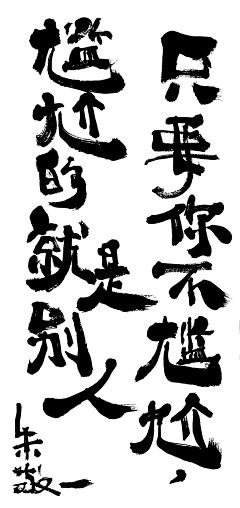 只要你不尴尬，
尴尬的就是别人
朱敬一